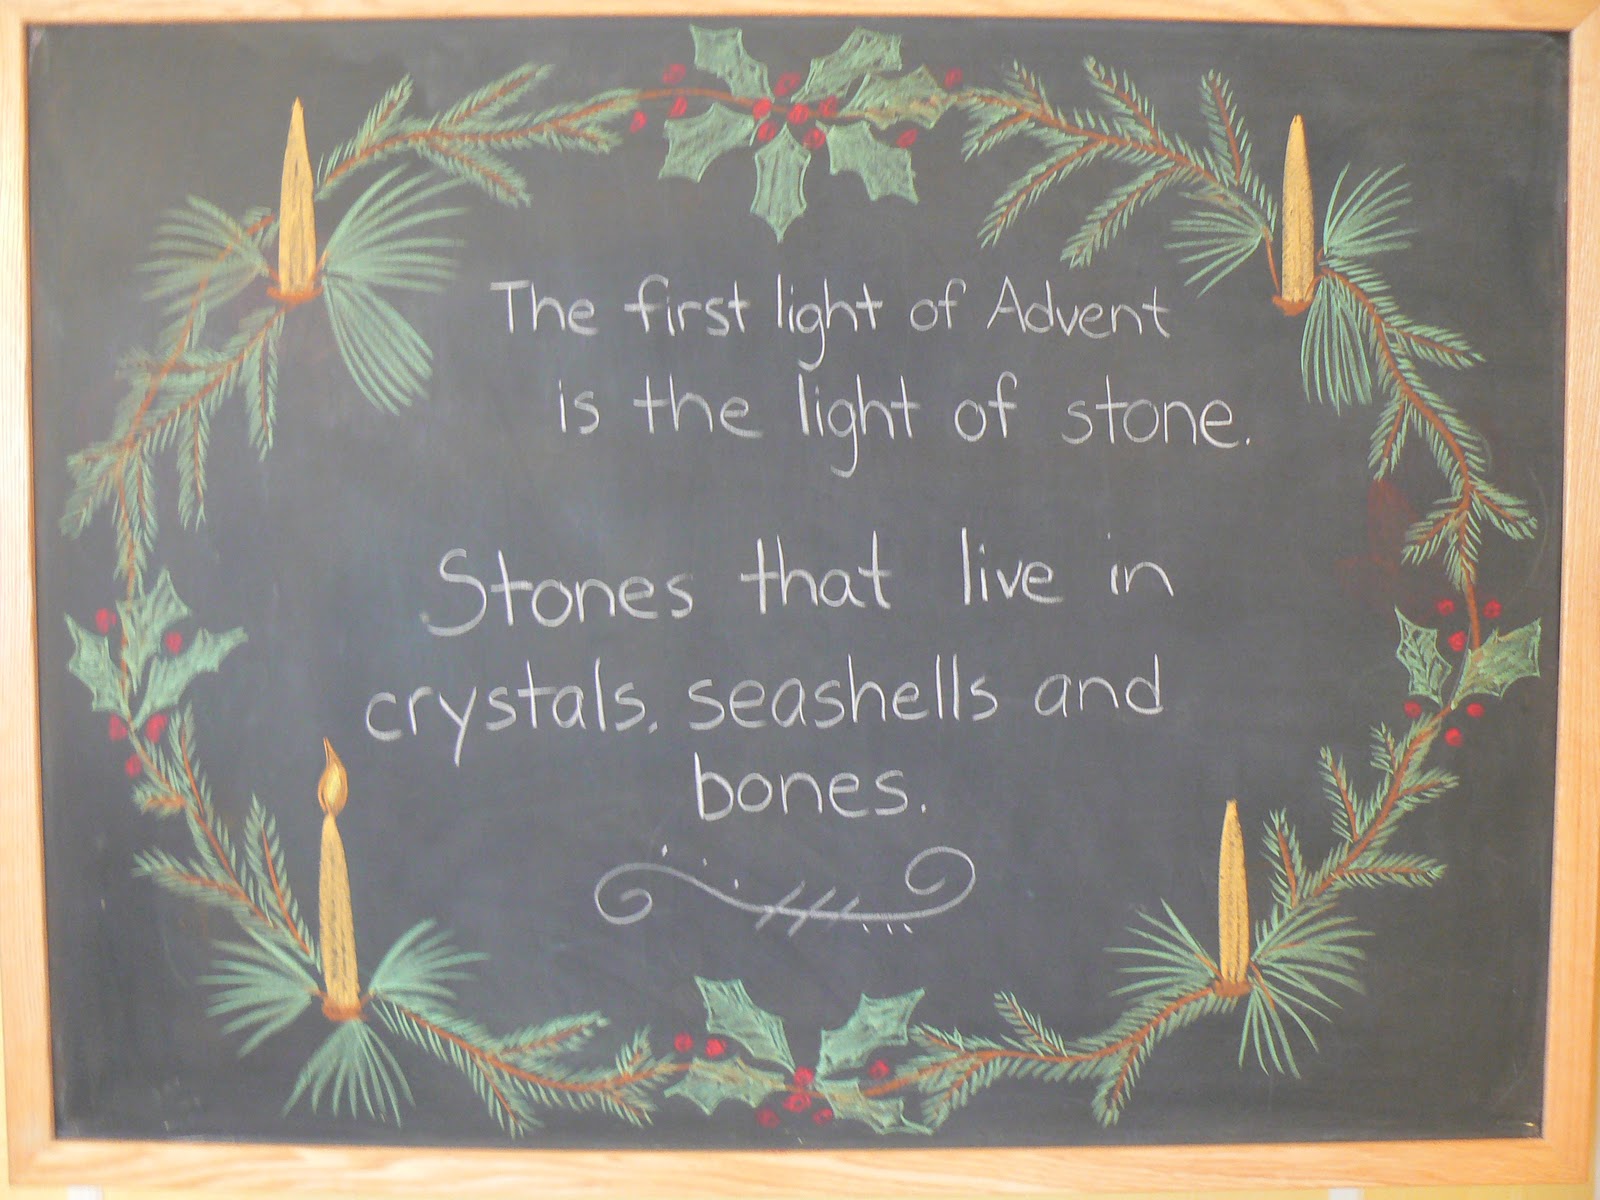 The first light of Advent
is the light of stone.
Stones that live in
crystals, seashells and
bones.